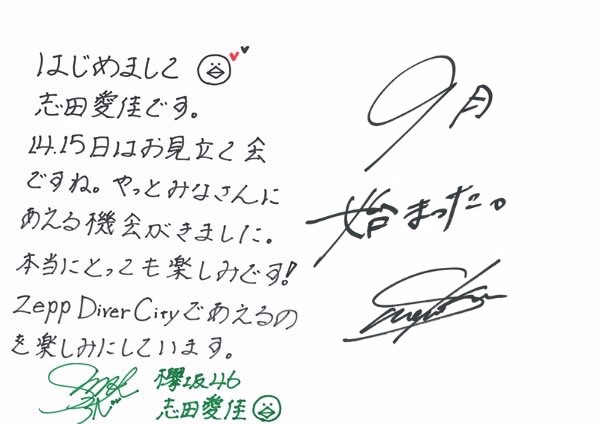 はじめまして
志田愛佳です。
14.15日はお見立て会
ですね。やっとみなさんに
あえる機会がきました。
本当にとっても楽しみです!
Zepp Diver Cityであえるの
を楽しみにしています。
欅坂46
志田愛佳
9月
始まった。